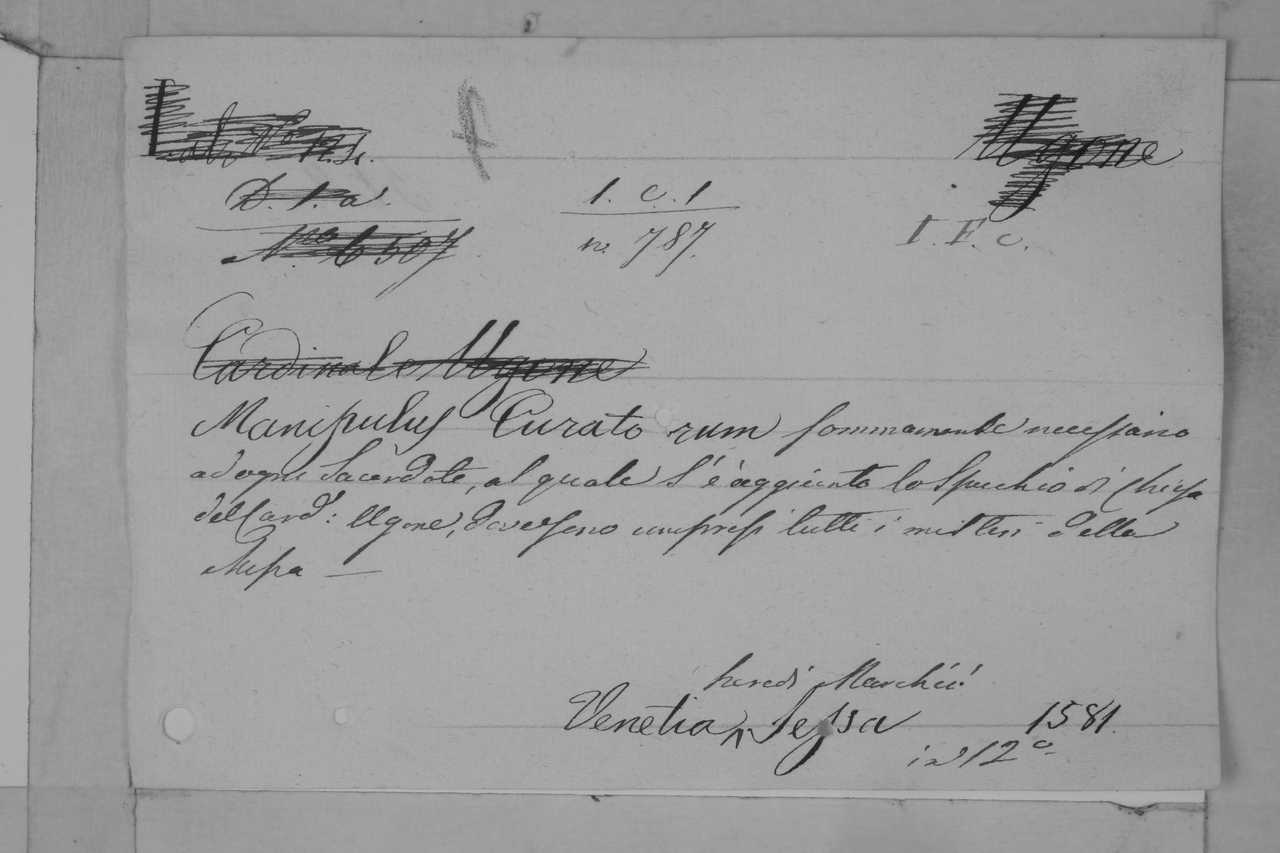 Ugone
D. 1. a.
1. c. 1
N.ro 6507
n. 787.
I. F. c.
Cardinale Ugone
Manipulus Curato rum sommamente necessario
ad ogni Sacerdote, al quale s'è aggiunto lo Specchio di Chiesa
del Card: Ugone, dove sono compresi tutti i misteri della
Messa —
heredi Marchiò
Venetia, Sessa 1581.
in 12.o